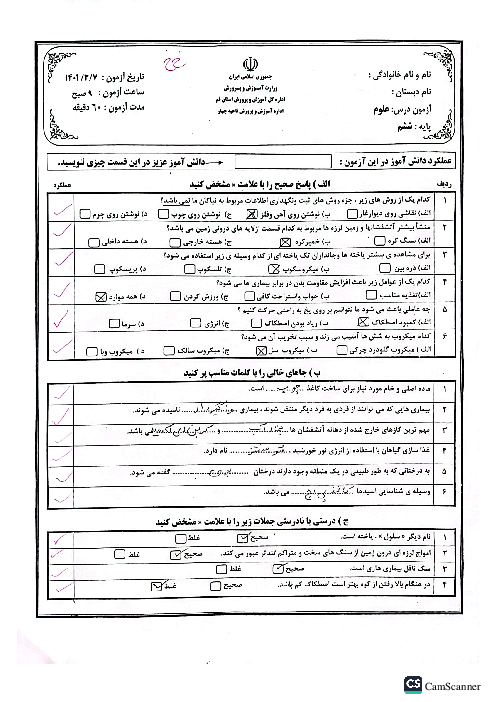 نام و نام خانوادگی :
نام دبستان :
آزمون درس: علوم
پایه : ششم
جمهوری اسلامی ایران
وزارت آموزش و پرورش
اداره کل آموزش و پرورش استان قم
اداره آموزش و پرورش ناحیه چهار
تاریخ آزمون : ۱۴۰۱/۲/۷
ساعت آزمون : ۹ صبح
مدت آزمون : ۶۰ دقیقه
عملکرد دانش آموز در این آزمون :
دانش آموز عزیز در این قسمت چیزی ننویسید.
ردیف
الف ) پاسخ صحیح را با علامت × مشخص کنید
عملکرد
۱ کدام یک از روش های زیر ، جزء روش های ثبت ونگهداری اطلاعات مربوط به نیاکان ما نمی باشد؟
الف) نقاشی روی دیوارغار ب) نوشتن روی آهن وفلز ج) نوشتن روی چوب د) نوشتن روی چرم
۲ منشأ بیشتر آتشفشانها و زمین لرزه ها مربوط به کدام قسمت از لایه های درونی زمین می باشد؟
الف) سنگ کره ب) خمیرکره ج) هسته خارجی د) هسته داخلی
۳ برای مشاهده ی بیشتر یاخته ها وجانداران تک یاخته ای از کدام وسیله ی زیر استفاده می شود؟
الف) ذره بین ب) میکروسکوپ ج) تلسکوپ د) پریسکوپ
۴ کدام یک از عوامل زیر باعث افزایش مقاومت بدن در برابر بیماری ها می شود؟
الف)تغذیه مناسب ب) خواب واستراحت کافی ج) ورزش کردن د) همه موارد
۵ چه عاملی باعث می شود ما نتوانیم بر روی یخ به راحتی حرکت کنیم ؟
الف) کمبود اصطکاک ب) زیاد بودن اصطکاک ج) انرژی د) سرما
۶ کدام میکروب به شش ها آسیب می زند و سبب تخریب آن می شود؟
الف ) میکروب گلودرد چرکی ب ) میکروب سل ج) میکروب سالک د ) میکروب وبا
ب ) جاهای خالی را با کلمات مناسب پر کنید
۱ ماده اصلی و خام مورد نیاز برای ساخت کاغذ چوب است.
۲ بیماری هایی که می توانند از فردی به فرد دیگر منتقل شوند ، بیماری نامیده می شوند.
۳ مهم ترین گازهای خارج شده از دهانه آتشفشان ها و می باشد.
۴ غذا سازی گیاهان با استفاده از انرژی نور خورشید ، نام دارد.
۵ به درختانی که به طور طبیعی در یک منطقه وجود دارند درختان گفته می شود.
۶ وسیله ی شناسایی اسیدها می باشد.
ج ) درستی یا نادرستی جملات زیر را با علامت × مشخص کنید
۱ نام دیگر « سلول » ، یاخته است. صحیح غلط
۲ امواج لرزه ای درون زمین از سنگ های سخت و متراکم کندتر عبور می کند. صحیح غلط
۳ سگ ناقل بیماری هاری است. صحیح غلط
۴ در هنگام بالا رفتن از کوه بهتر است اصطکاک کم باشد. صحیح غلط
CS CamScanner